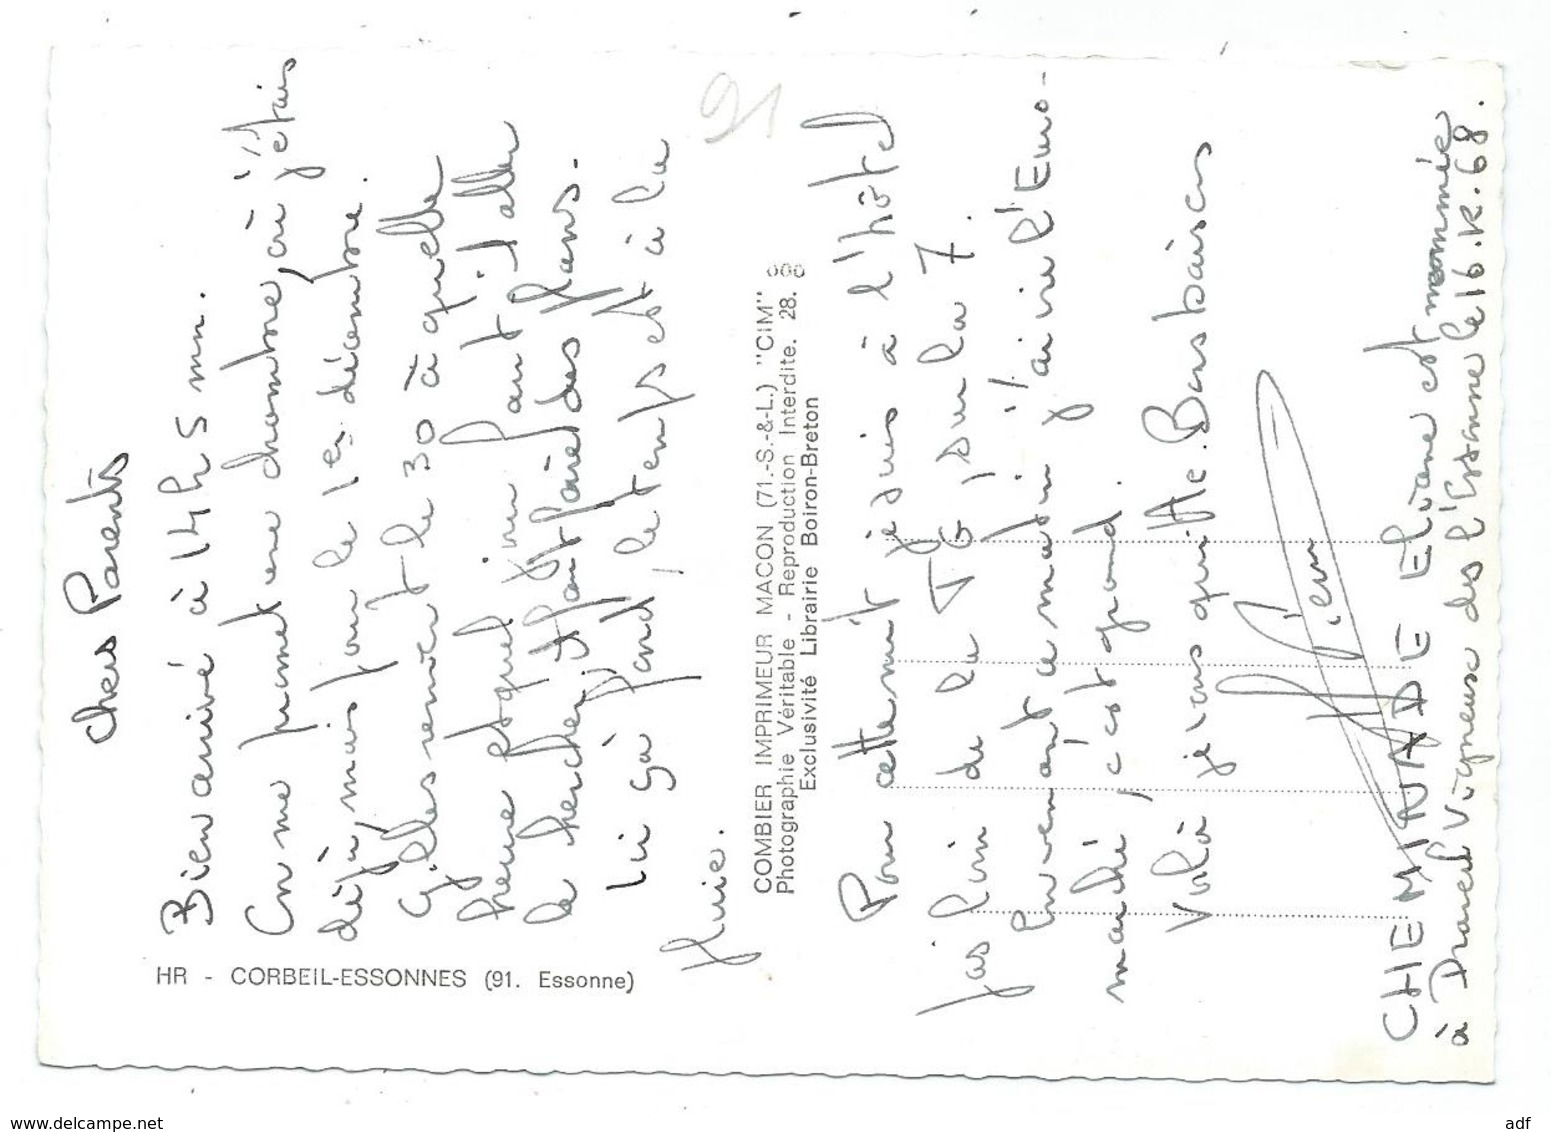 chers Parents
Bien arrivé à 14 h 5 mn.
On me permet une chambre, où j'étais
déjà, mais pour le 1er décembre.
Gilles rentre le 30 à quelle
heure et quel jour faut-il aller
le chercher, il faut faire des plans.
Ici ça, le temps est à la
pluie.
91
HR - CORBEIL-ESSONNES (91. Essonne)
COMBIER IMPRIMEUR MACON (71.-S.-&-L.) "CIM"
Photographie Véritable - Reproduction Interdite. 28.
Exclusivité Librairie Boiron-Breton
Pour cette nuit je suis à l'hôtel
pas loin de la, sur la 7.
En venant ce matin j'ai vu l'Euro-
marché, c'est grand.
Voilà je vous quitte. Bons baisers
CHEMINADE Eliane est nommée
à Draveil Vigneux des l'Essonne le 16.12.68.
www.delcampe.net
adf